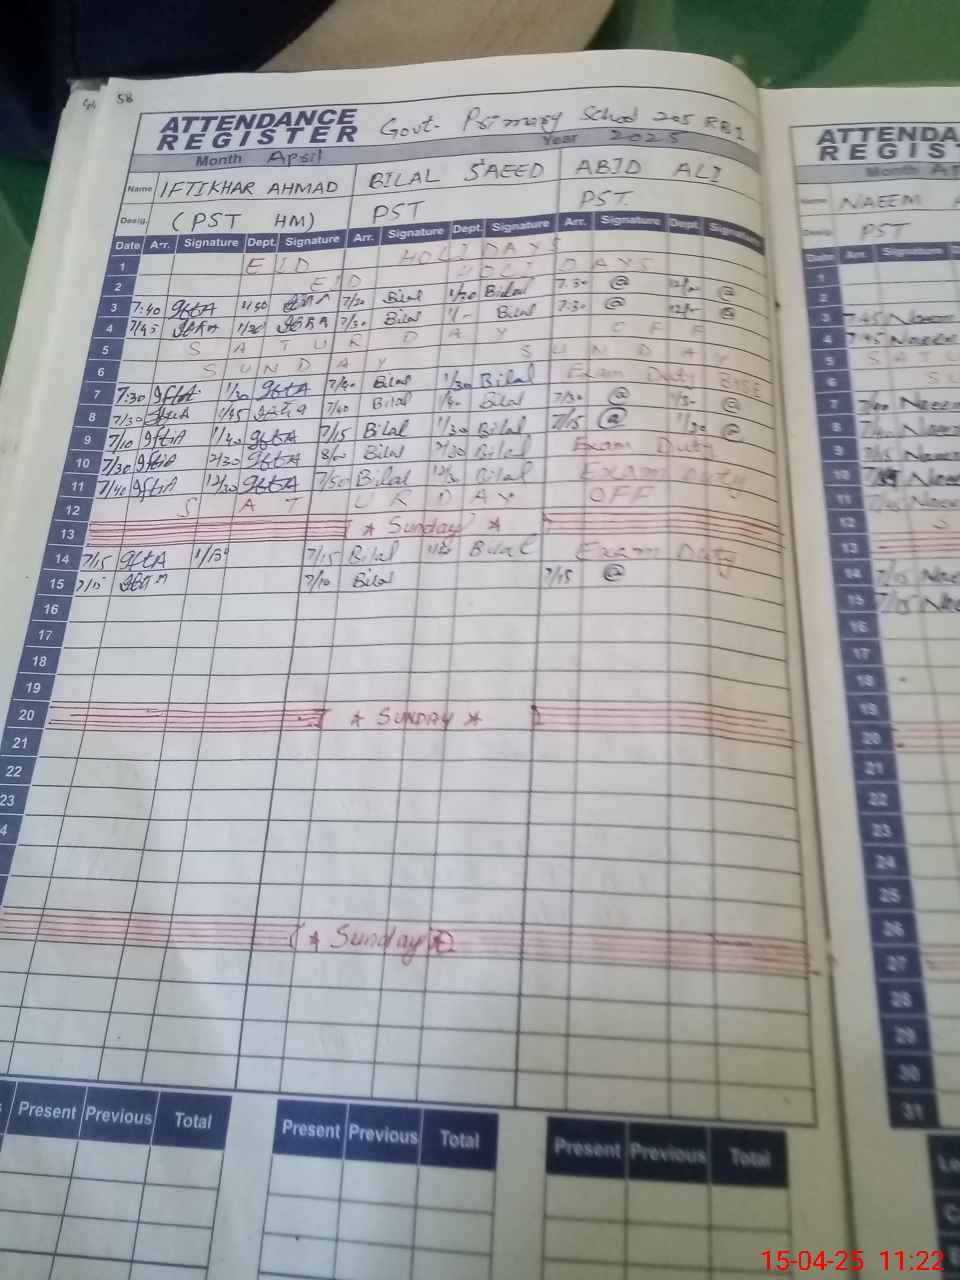 58
ATTENDANCE REGISTER Govt. Primary School 205 RB1
Month April Year 2025
Name IFTIKHAR AHMAD BILAL SAEED ABID ALI
Desig. (PST HM) PST PST
Date Arr. Signature Dept. Signature Arr. Signature Dept. Signature Arr. Signature Dept. Signature
1 EID HOLIDAYS
2 EID HOLIDAYS
3 7:40 1/30 7/30 Bilal 1/30 Bilal 7:30 @ @
4 7/45 1/30 7/30 Bilal 1/- Bilal 7:30 @ @
5 SATURDAY OFF
6 SUNDAY SUNDAY
7 7:30 1/30 7/40 Bilal 1/30 Bilal Exam Duty
8 7/30 1/45 7/40 Bilal 1/40 Bilal 7/30 @ 1/30 @
9 7/10 1/40 7/15 Bilal 1/30 Bilal 7/15 @ 1/30 @
10 7/30 Bilal Bilal Exam Duty
11 7/40 12/30 7/50 Bilal 12/30 Bilal Exam Duty
12 SATURDAY OFF
13 * Sunday *
14 7/15 1/30 7/15 Bilal 1/30 Bilal Exam Duty
15 7/15 7/10 Bilal 7/15 @
16
17
18
19
20 * SUNDAY *
21
22
23
4
* Sunday *
Present Previous Total Present Previous Total Present Previous Total
ATTENDA
REGIST
Month Ap
Name NAEEM A
Desig. PST
Date Arr. Signature
1
2
3 7:45 Naeem
4 7:45 Naeem
5 SATU
6 SU
7 Naeem
8 Naeem
9 7/15 Naeem
10 Naeem
11 Naeem
12 S
13
14 7/15 Nae
15 7/15 Nae
16
17
18
19
20
21
22
23
24
25
26
27
28
29
30
31
15-04-25 11:22